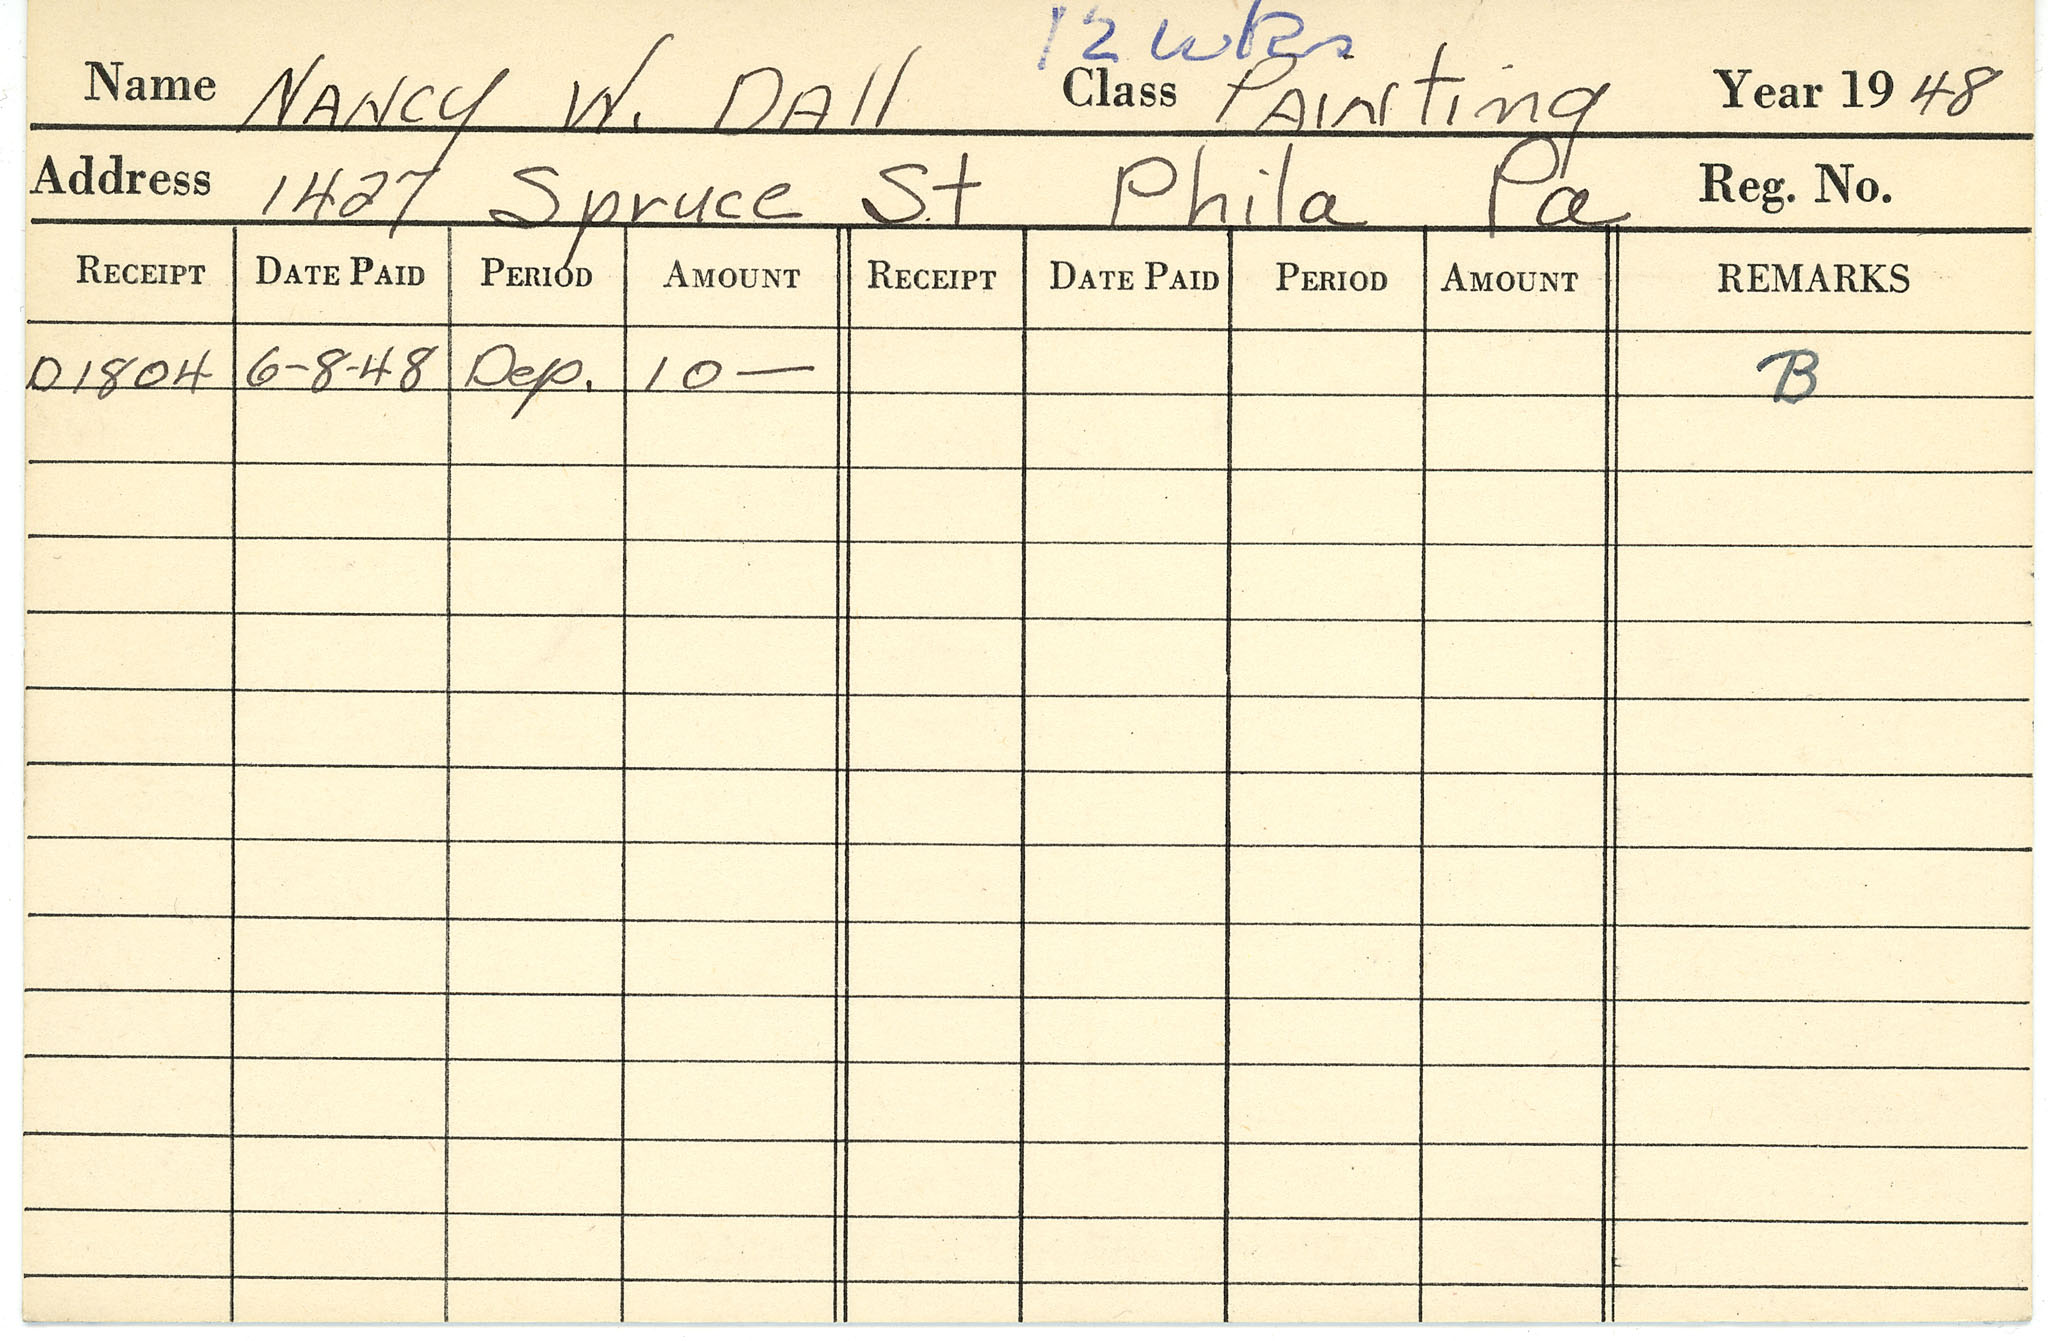 12 wks
Name NANCY W. DAll Class PAINting Year 1948
Address 1427 Spruce St Phila Pa Reg. No.
RECEIPT DATE PAID PERIOD AMOUNT RECEIPT DATE PAID PERIOD AMOUNT REMARKS
D1804 6-8-48 Dep. 10— B